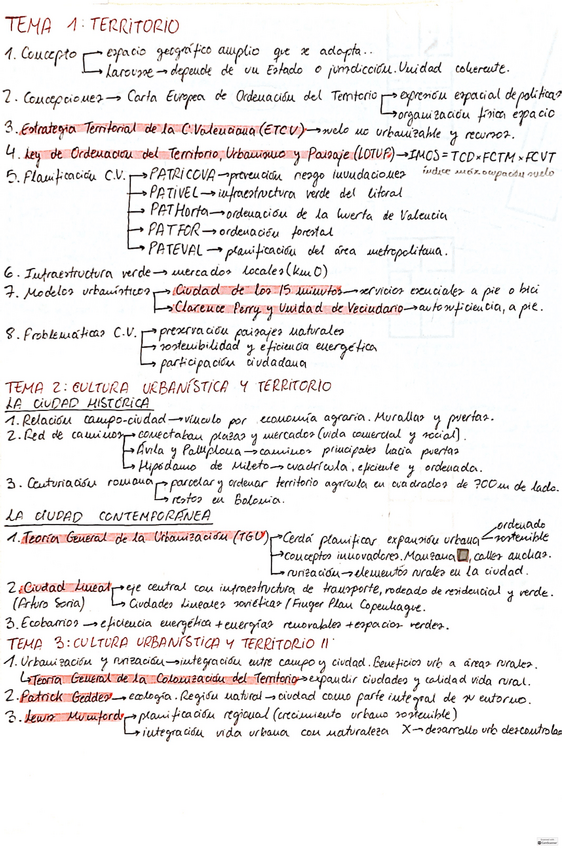 TEMA 1: TERRITORIO
1. Concepto → espacio geográfico amplio que se adapta..
→ Larousse → depende de un Estado o jurisdicción. Unidad coherente.
2. Concepciones → Carta Europea de Ordenación del Territorio → expresión espacial de políticas
→ organización física espacio
3. Estrategia Territorial de la C.Valenciana (ETCV) → suelo no urbanizable y recursos.
4. Ley de Ordenación del Territorio, Urbanismo y Paisaje (LOTUP) → IMOS = TCD × FCTM × FCVT
índice máx ocupación suelo
5. Planificación C.V. → PATRICOVA → prevención riesgo inundaciones
→ PATIVEL → infraestructura verde del litoral
→ PATHorta → ordenación de la huerta de Valencia
→ PATFOR → ordenación forestal
→ PATEVAL → planificación del área metropolitana.
6. Infraestructura verde → mercados locales (km 0)
7. Modelos urbanísticos → Ciudad de los 15 minutos → servicios esenciales a pie o bici
→ Clarence Perry y Unidad de Vecindario → autosuficiencia, a pie.
8. Problemáticas C.V. → preservación paisajes naturales
→ sostenibilidad y eficiencia energética
→ participación ciudadana
TEMA 2: CULTURA URBANÍSTICA Y TERRITORIO
LA CIUDAD HISTÓRICA
1. Relación campo-ciudad → vínculo por economía agraria. Murallas y puertas.
2. Red de caminos → conectaban plazas y mercados (vida comercial y social).
→ Ávila y Pamplona → caminos principales hacia puertas
→ Hipódamo de Mileto → cuadrícula, eficiente y ordenada.
3. Centuriación romana → parcelar y ordenar territorio agrícola en cuadrados de 700 m de lado.
→ restos en Bolonia.
LA CIUDAD CONTEMPORÁNEA
1. Teoría General de la Urbanización (TGU) → Cerdá planificar expansión urbana ordenado
sostenible
→ conceptos innovadores. Manzana □, calles anchas.
→ rurización → elementos rurales en la ciudad.
2. Ciudad Lineal → eje central con infraestructura de transporte, rodeado de residencial y verde.
(Arturo Soria) → Ciudades Lineales soviéticas / Finger Plan Copenhague.
3. Ecobarrios → eficiencia energética + energías renovables + espacios verdes.
TEMA 3: CULTURA URBANÍSTICA Y TERRITORIO II
1. Urbanización y rurización → integración entre campo y ciudad. Beneficios urb a áreas rurales.
→ Teoría General de la Colonización del Territorio → expandir ciudades y calidad vida rural.
2. Patrick Geddes → ecología. Región natural → ciudad como parte integral de su entorno.
3. Lewis Mumford → planificación regional (crecimiento urbano sostenible)
→ integración vida urbana con naturaleza X → desarrollo urb descontrolad